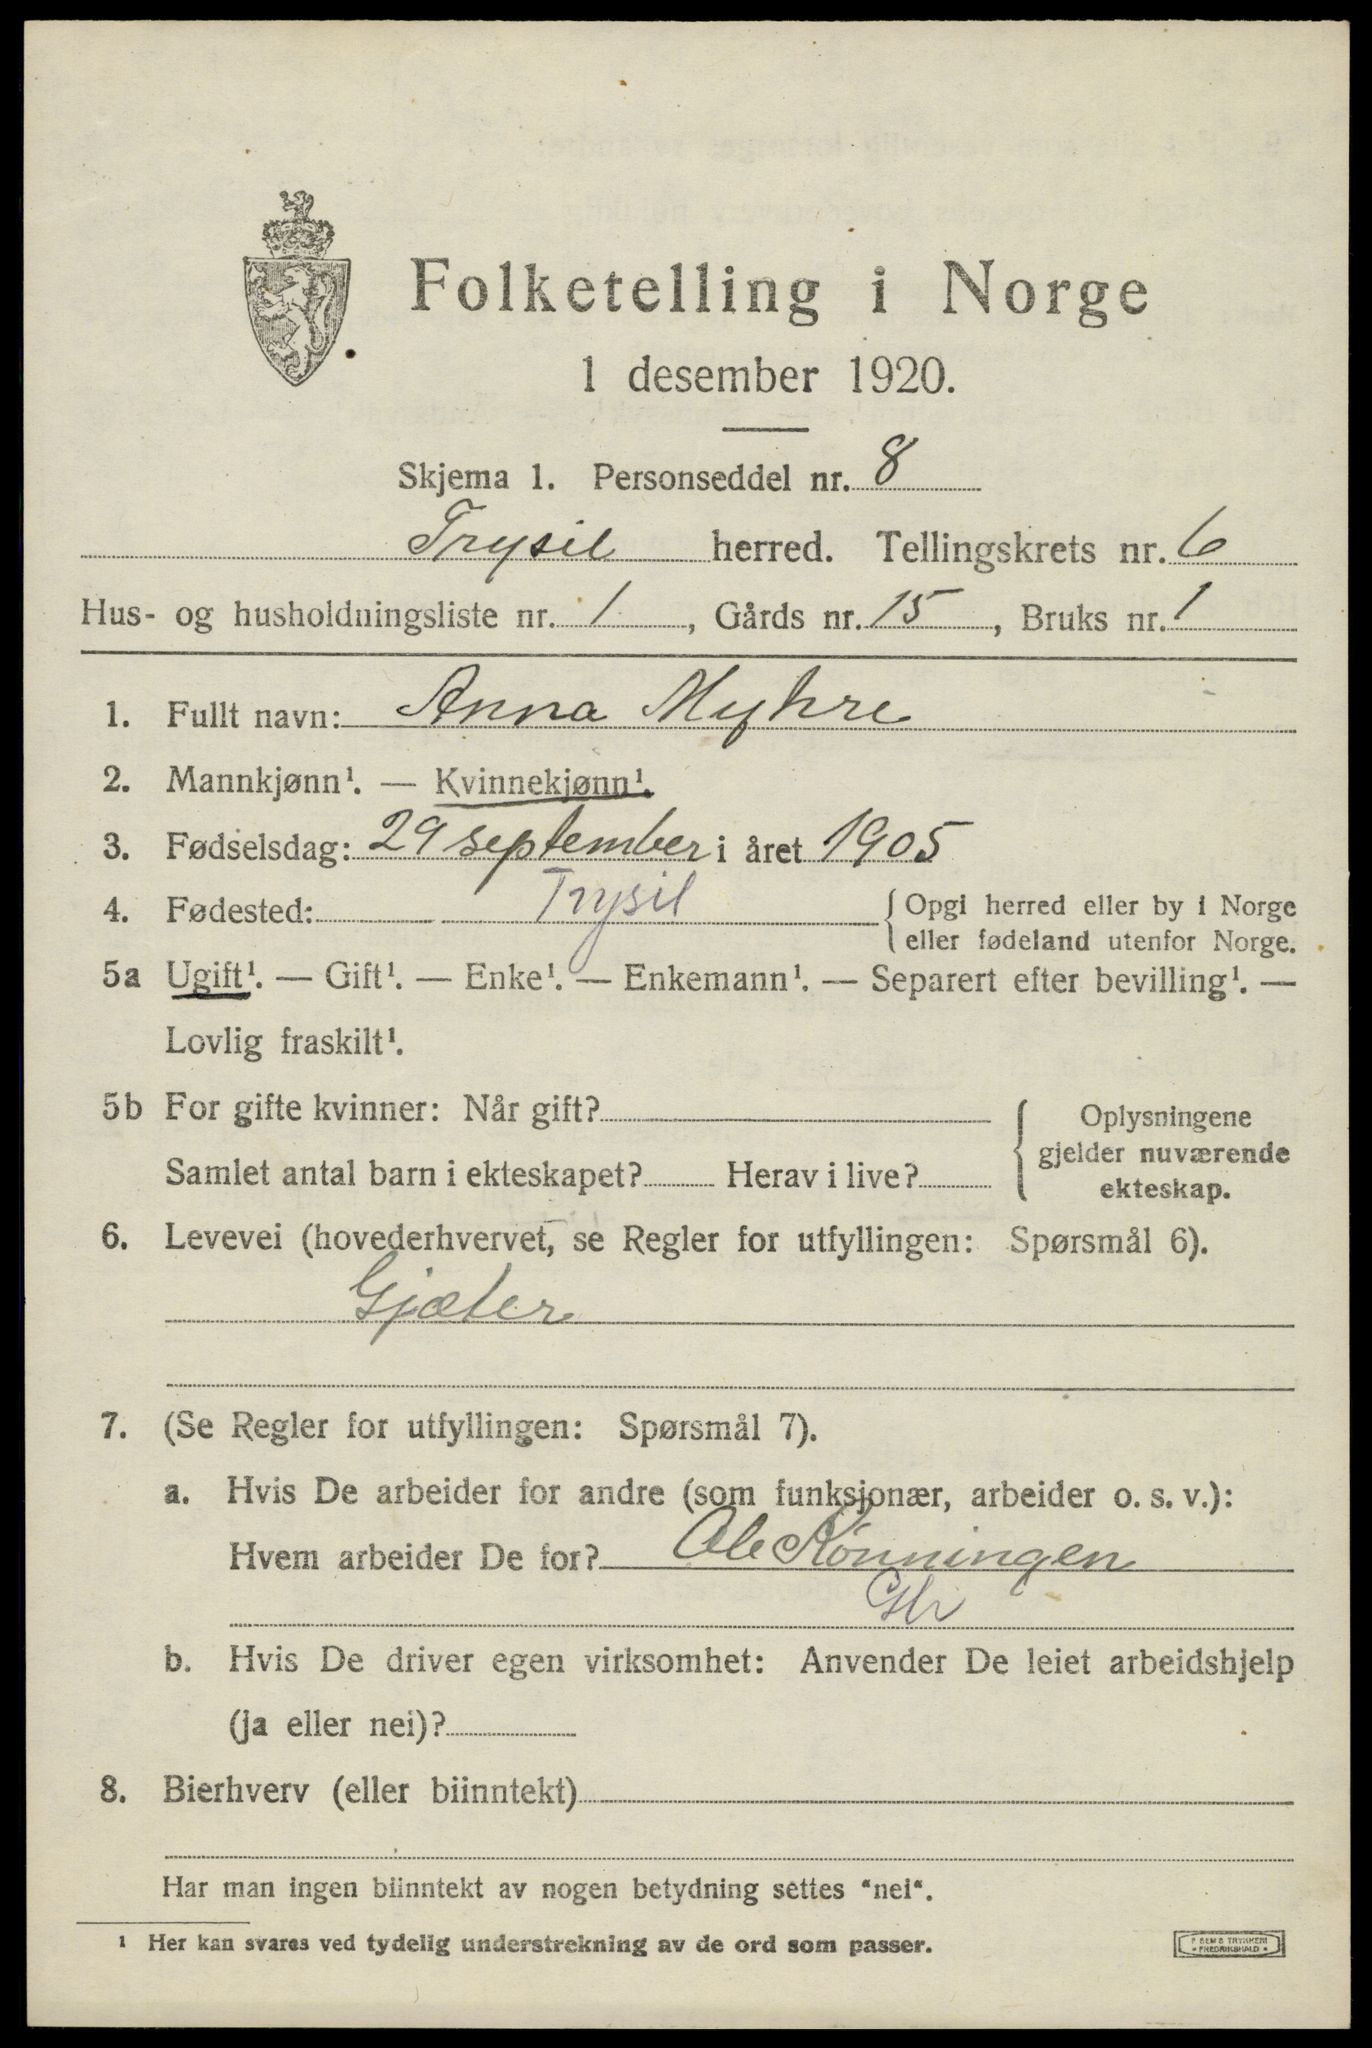 Folketelling i Norge
1 desember 1920.
Skjema 1. Personseddel nr. 8
Trysil herred. Tellingskrets nr. 6
Hus- og husholdningsliste nr. 1, Gårds nr. 15, Bruks nr. 1
1. Fullt navn: Anna Myhre
2. Mannkjønn¹. — Kvinnekjønn¹.
3. Fødselsdag: 29 september i året 1905
4. Fødested: Trysil { Opgi herred eller by i Norge
eller fødeland utenfor Norge.
5a Ugift¹. — Gift¹. — Enke¹. — Enkemann¹. — Separert efter bevilling¹. —
Lovlig fraskilt¹.
5b For gifte kvinner: Når gift?
Samlet antal barn i ekteskapet? Herav i live?
{ Oplysningene
gjelder nuværende
ekteskap.
6. Levevei (hovederhvervet, se Regler for utfyllingen: Spørsmål 6).
Gjæter
7. (Se Regler for utfyllingen: Spørsmål 7).
a. Hvis De arbeider for andre (som funksjonær, arbeider o. s. v.):
Hvem arbeider De for? Ole Rønningen
b. Hvis De driver egen virksomhet: Anvender De leiet arbeidshjelp
(ja eller nei)?
8. Bierhverv (eller biinntekt)
Har man ingen biinntekt av nogen betydning settes "nei".
¹ Her kan svares ved tydelig understrekning av de ord som passer.
FREDRIKSHALD